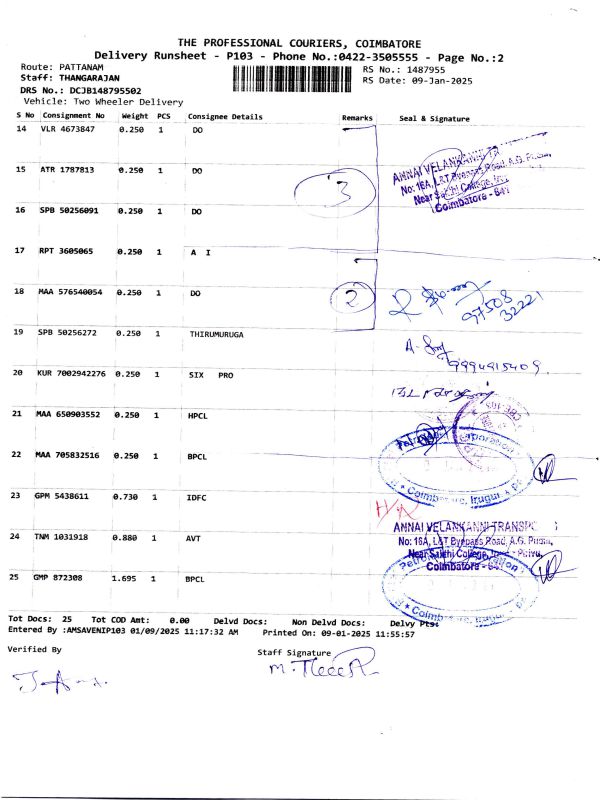 THE PROFESSIONAL COURIERS, COIMBATORE
Delivery Runsheet - P103 - Phone No.:0422-3505555 - Page No.:2
Route: PATTANAM
RS No.: 1487955
Staff: THANGARAJAN
RS Date: 09-Jan-2025
DRS No.: DCJB148795502
Vehicle: Two Wheeler Delivery
S No Consignment No Weight PCS Consignee Details Remarks Seal & Signature
14 VLR 4673847 0.250 1 DO
15 ATR 1787813 0.250 1 DO
ANNAI VELANKANNI
No: 16A, L&T Byepass Road, A.G.
Near Sakthi College,
Coimbatore - 641
3
16 SPB 50256091 0.250 1 DO
17 RPT 3605065 0.250 1 A I
18 MAA 576540054 0.250 1 DO
2
97508
32221
19 SPB 50256272 0.250 1 THIRUMURUGA
9994915409.
20 KUR 7002942276 0.250 1 SIX PRO
21 MAA 650903552 0.250 1 HPCL
22 MAA 705832516 0.250 1 BPCL
23 GPM 5438611 0.730 1 IDFC
24 TNM 1031918 0.880 1 AVT
ANNAI VELANKANNI TRANSPO
No: 16A, L&T Byepass Road, A.G.
Near Sakthi College,
Coimbatore - 641
25 GMP 872308 1.695 1 BPCL
Tot Docs: 25 Tot COD Amt: 0.00 Delvd Docs: Non Delvd Docs: Delvy Pts:
Entered By :AMSAVENIP103 01/09/2025 11:17:32 AM Printed On: 09-01-2025 11:55:57
Verified By
Staff Signature